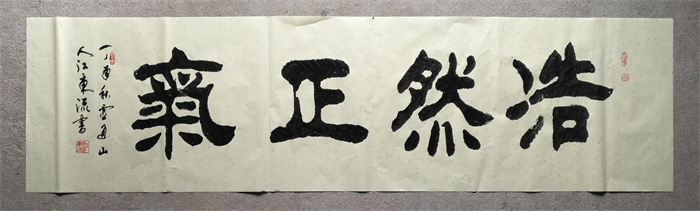 浩然正氣
丁酉秋雲通山
人江東流書